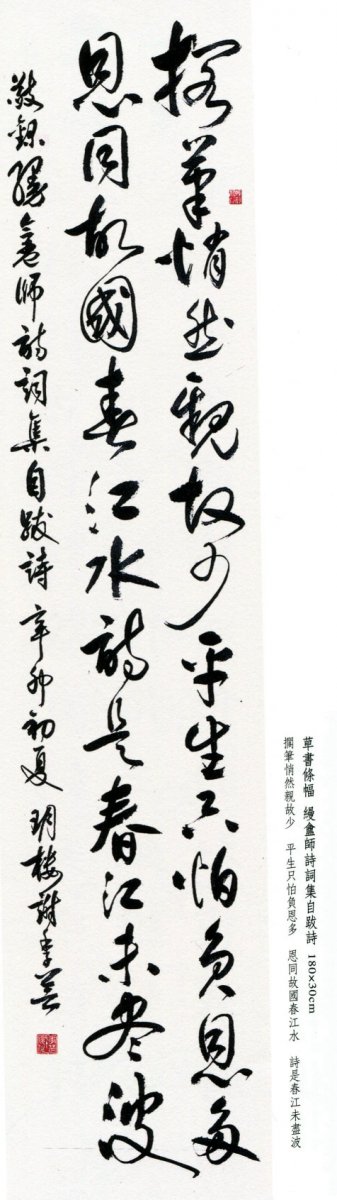 草書條幅 縵盦師詩詞集自跋詩 180×30cm
擱筆悄然親故少 平生只怕負恩多 恩同故國春江水 詩是春江未盡波
擱筆悄然親故少平生只怕負恩多
恩同故國春江水詩是春江未盡波
敬錄縵盦師詩詞集自跋詩 辛卯初夏